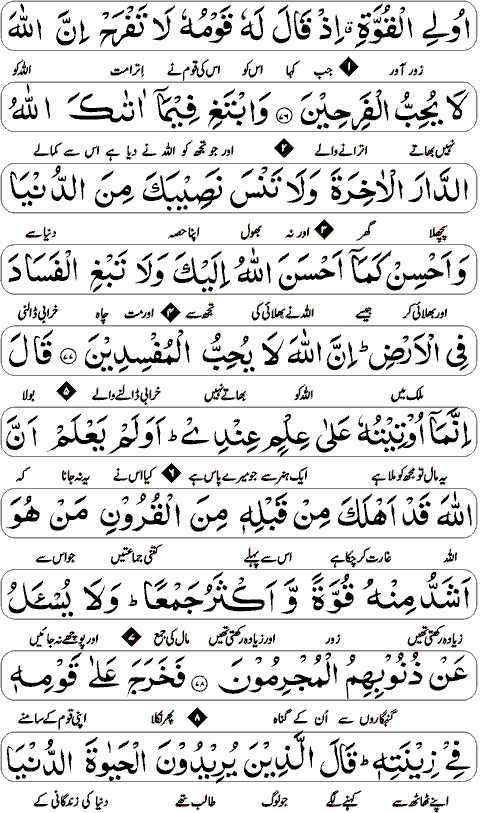 اُولِی الۡقُوَّةِ ٭ اِذۡ قَالَ لَهٗ قَوۡمُهٗ لَا تَفۡرَحۡ اِنَّ اللّٰهَ
زور آور ۱ جب کہا اس کو اس کی قوم نے اِترا مت اللہ کو
لَا یُحِبُّ الۡفَرِحِیۡنَ ﴿۷۶﴾ وَابۡتَغِ فِیۡمَاۤ اٰتٰىكَ اللّٰهُ
نہیں بھاتے اترانے والے ۲ اور جو تجھ کو اللہ نے دیا ہے اس سے کمالے
الدَّارَ الۡاٰخِرَةَ وَلَا تَنۡسَ نَصِیۡبَكَ مِنَ الدُّنۡیَا
پچھلا گھر ۳ اور نہ بھول اپنا حصہ دنیا سے
وَاَحۡسِنۡ كَمَاۤ اَحۡسَنَ اللّٰهُ اِلَیۡكَ وَلَا تَبۡغِ الۡفَسَادَ
اور بھلائی کر جیسے اللہ نے بھلائی کی تجھ سے ۴ اور مت چاہ خرابی ڈالنی
فِی الۡاَرۡضِ ؕ اِنَّ اللّٰهَ لَا یُحِبُّ الۡمُفۡسِدِیۡنَ ﴿۷۷﴾ قَالَ
ملک میں اللہ کو بھاتے نہیں خرابی ڈالنے والے ۵ بولا
اِنَّمَاۤ اُوۡتِیۡتُهٗ عَلٰی عِلۡمٍ عِنۡدِیۡ ؕ اَوَلَمۡ یَعۡلَمۡ اَنَّ
یہ مال تو مجھ کو ملا ہے ایک ہنر سے جو میرے پاس ہے ۶ کیا اس نے یہ نہ جانا کہ
اللّٰهَ قَدۡ اَهۡلَكَ مِنۡ قَبۡلِهٖ مِنَ الۡقُرُوۡنِ مَنۡ هُوَ
اللہ غارت کر چکا ہے اس سے پہلے کتنی جماعتیں جو اس سے
اَشَدُّ مِنۡهُ قُوَّةً وَّ اَكۡثَرُ جَمۡعًا ؕ وَلَا یُسۡـَٔلُ
زیادہ رکھتی تھیں زور اور زیادہ رکھتی تھیں مال کی جمع ۷ اور پوچھے نہ جائیں
عَنۡ ذُنُوۡبِهِمُ الۡمُجۡرِمُوۡنَ ﴿۷۸﴾ فَخَرَجَ عَلٰی قَوۡمِهٖ
گنہگاروں سے اُن کے گناہ ۸ پھر نکلا اپنی قوم کے سامنے
فِیۡ زِیۡنَتِهٖ ؕ قَالَ الَّذِیۡنَ یُرِیۡدُوۡنَ الۡحَیٰوةَ الدُّنۡیَا
اپنے ٹھاٹھ سے کہنے لگے جو لوگ طالب تھے دنیا کی زندگانی کے